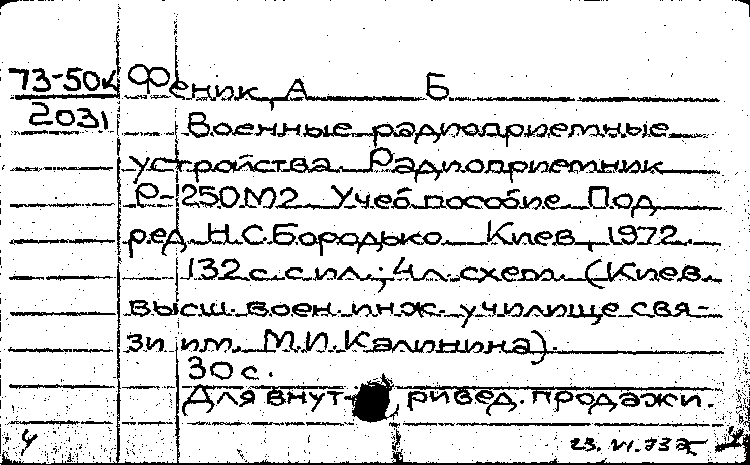 73-50к Феник, А Б
2031
Военные радиоприемные
устройства. Радиоприемник
Р-250М2. Учеб. пособие. Под
ред. Н.С.Бородько. Киев, 1972.
132 с. с ил.; 4 л. схем. (Киев.
высш. воен. инж. училище свя-
зи им. М.И.Калинина).
30 с.
Для внут- ривед. продажи.
4 23.VI.73